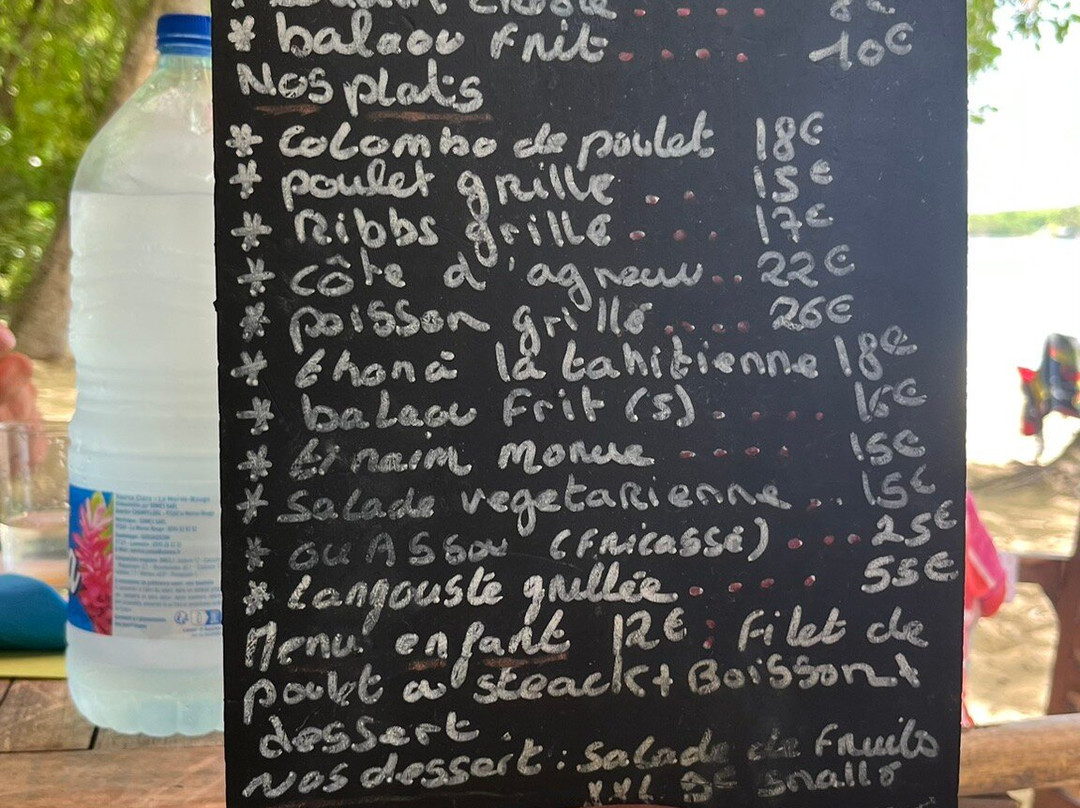 * balaou frit.... 10€
Nos plats
* Colombo de poulet 18€
* poulet grillé... 15€
* Ribbs grillé.... 17€
* côte d'agneau.. 22€
* poisson grillé..... 26€
* thon à la tahitienne 18€
* balaou frit (s)..... 16€
* morue.... 15€
* Salade vegetarienne.. 15€
* OUASSOU (fricassé).... 25€
* Langouste grillée.... 55€
Menu enfant 12€: filet de
poulet ou steack+Boisson+
dessert.
Nos dessert: Salade de fruits
XXL 9€ small 6